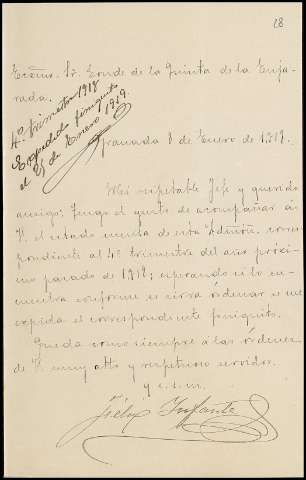 28
Excmo. Sr. Conde de la Quinta de la Enja-
rada.
4º trimestre 1918
Expedido finiquito
el 21 de Enero 1919.
Granada 8 de Enero de 1919.
Mui respetable Jefe y querido
amigo: Tengo el gusto de acompañar á
V. el estado cuenta de esta Admón. corres-
pondiente al 4º trimestre del año próxi-
mo pasado de 1918; esperando si lo en-
cuentra conforme se sirva órdenar se me
expida el correspondiente finiquito.
Queda como siempre a las órdenes
de V. muy afto y respetuoso servidor.
q. e. s. m.
Félix Infante